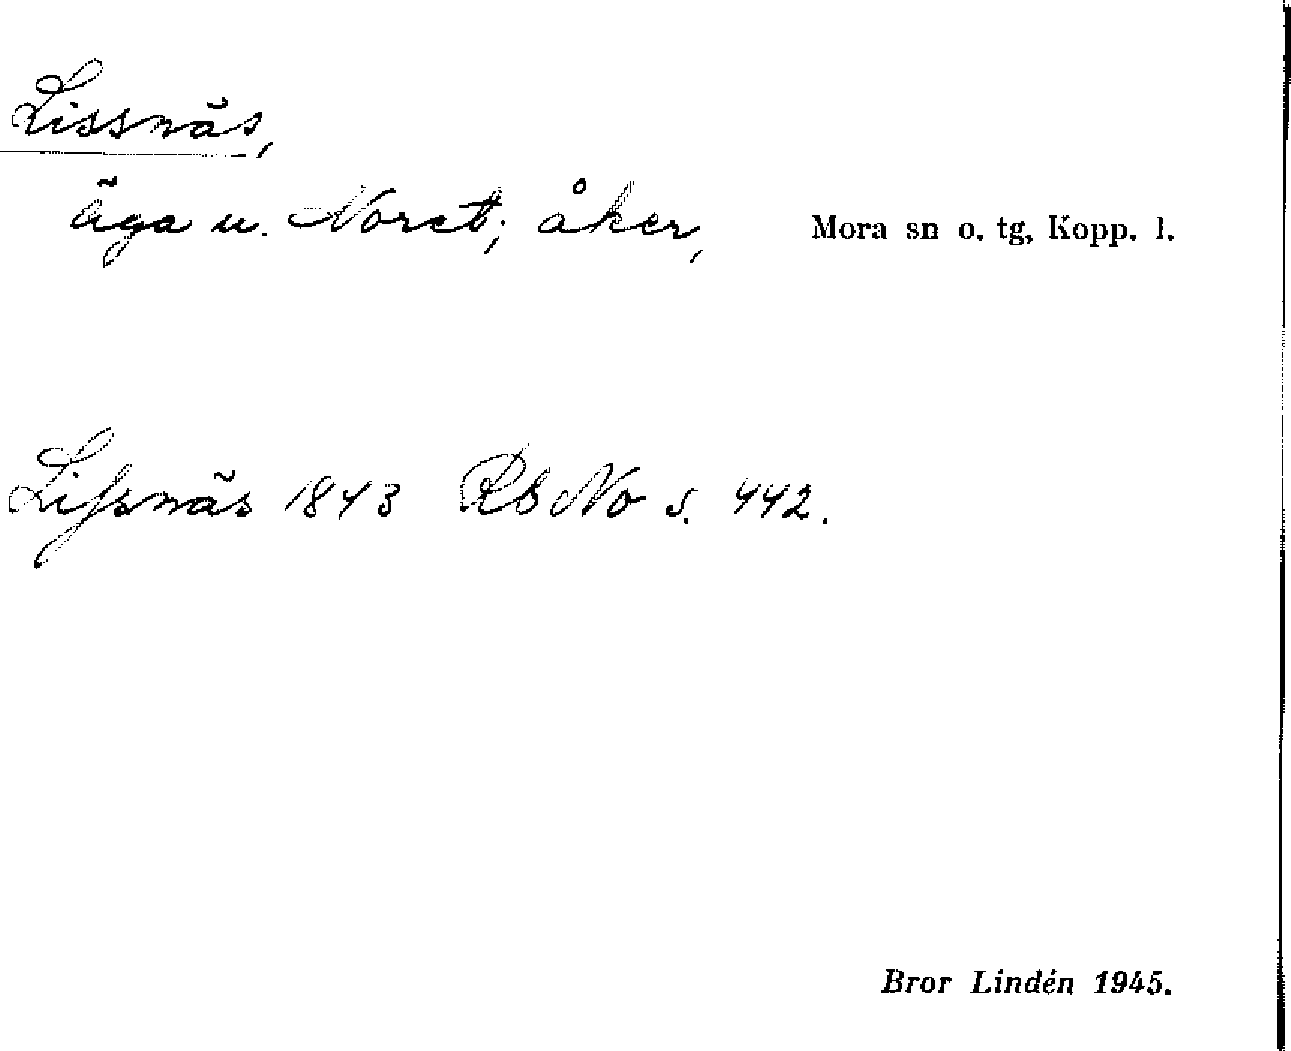 Lissnäs,
äga u. Noret; åker, Mora sn o. tg, Kopp. l.
Lifsnäs 1843 RbNo s. 442.
Bror Lindén 1945.